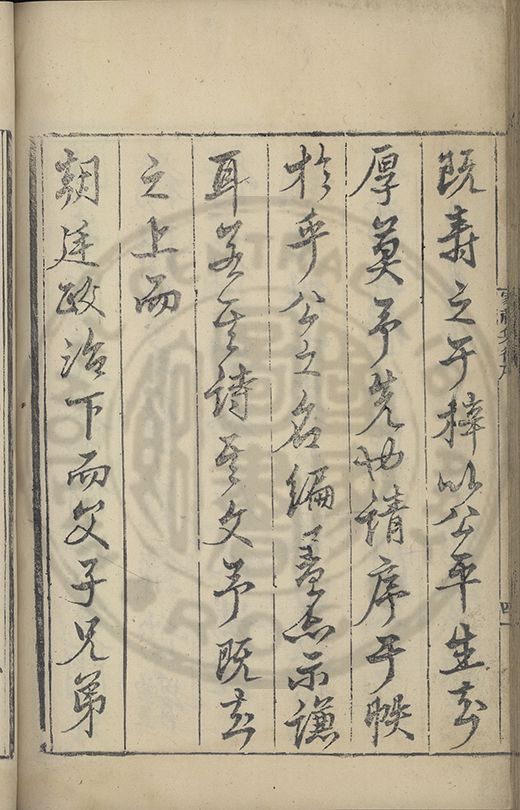 既壽之于梓以公平生交
厚莫予先也請序于帙
於乎公之名編
示謙
耳若其詩其文予既
之上而
朝廷政治下而父子兄弟
四